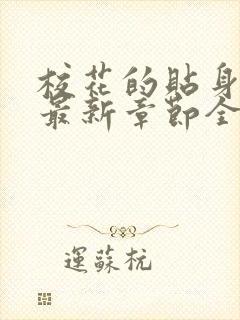 校花的貼身
最新章節全
運蘇杭